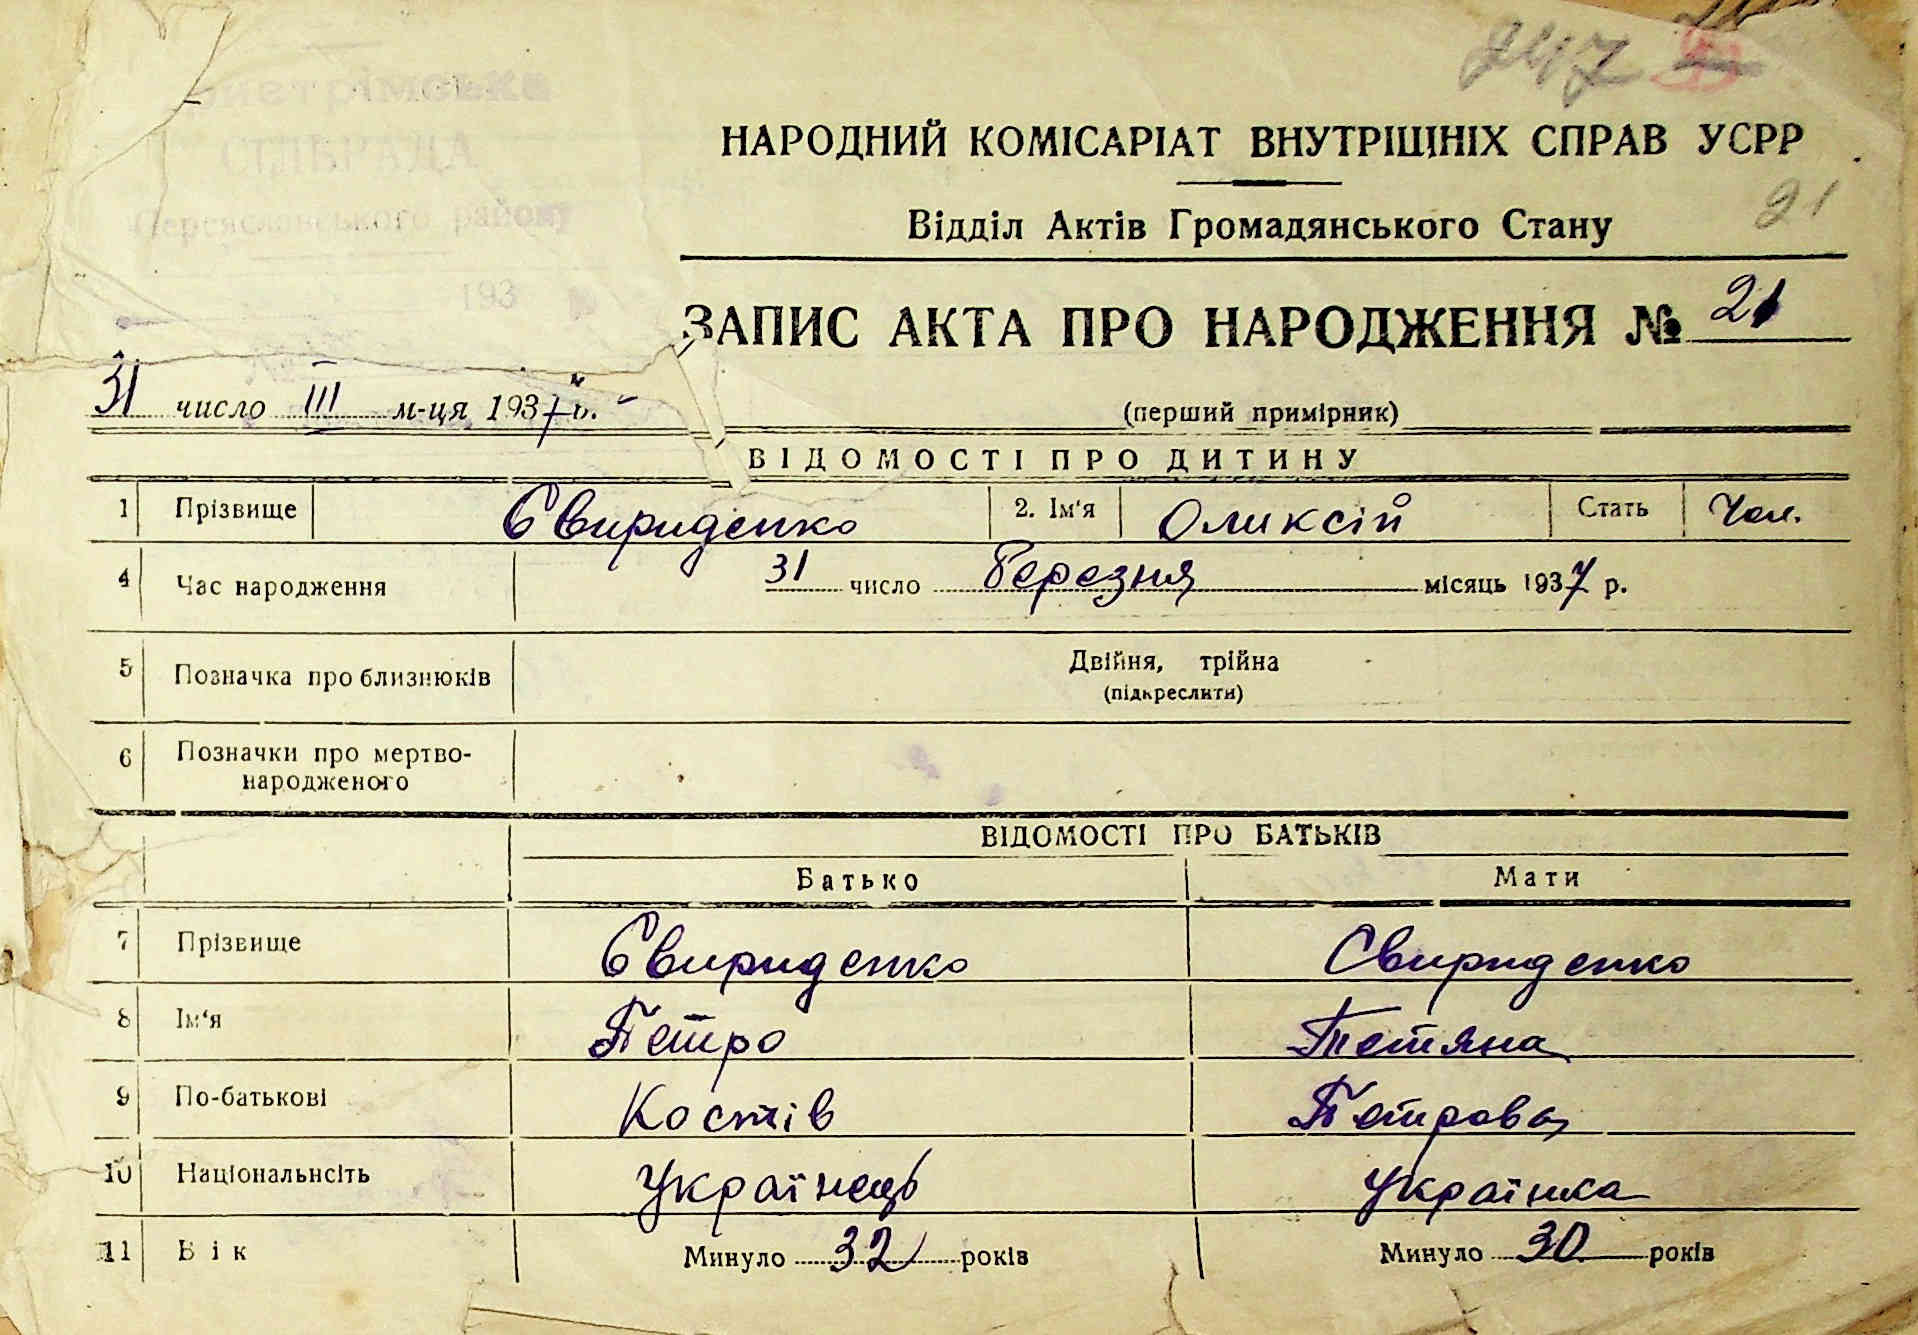 247
21
СІЛЬРАДА
Переяславського району
193
НАРОДНИЙ КОМІСАРІАТ ВНУТРІШНІХ СПРАВ УСРР
Відділ Актів Громадянського Стану
ЗАПИС АКТА ПРО НАРОДЖЕННЯ № 21
31 число III м-ця 1937 р.
(перший примірник)
ВІДОМОСТІ ПРО ДИТИНУ
1 Прізвище Свириденко 2. Ім'я Оликсій Стать Чол.
4 Час народження 31 число Березня місяць 1937 р.
5 Позначка про близнюків Двійня, трійна
(підкреслити)
6 Позначки про мертво-
народженого
ВІДОМОСТІ ПРО БАТЬКІВ
Батько Мати
7 Прізвище Свириденко Свириденко
8 Ім'я Петро Тетяна
9 По-батькові Костів Петрова
10 Національнсіть Українець Українка
11 Вік Минуло 32 років Минуло 30 років